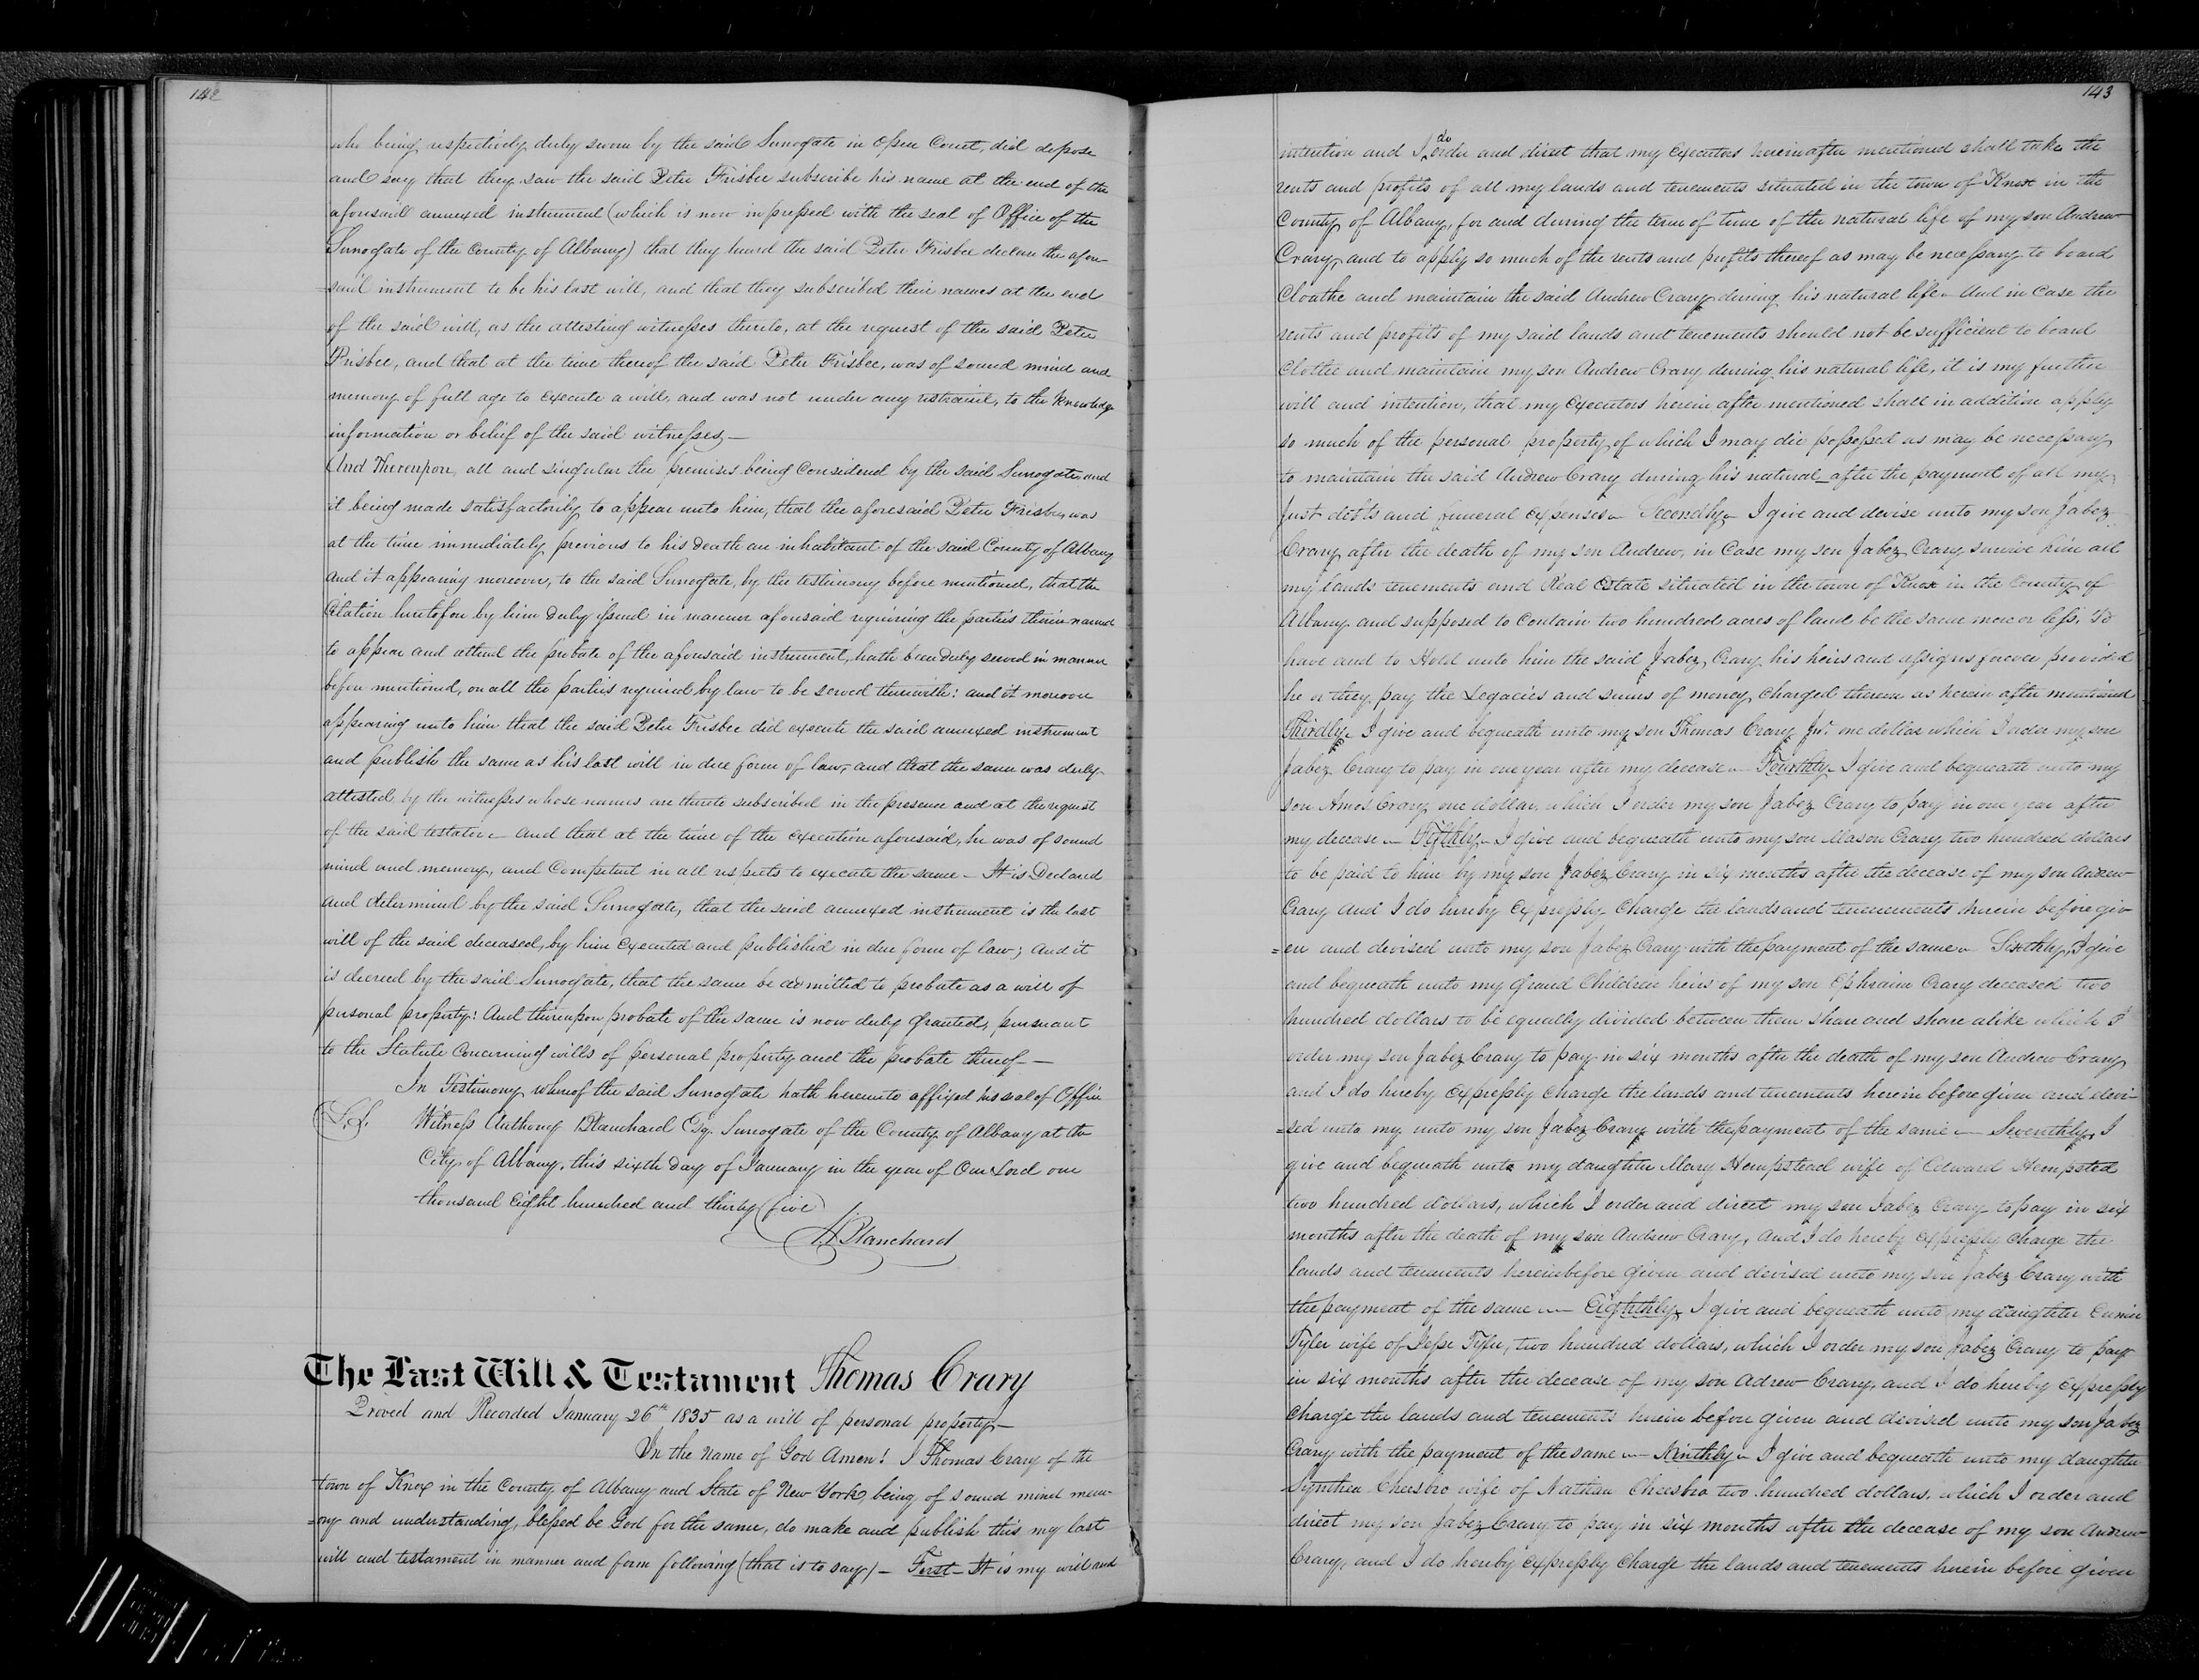 142
who being respectively duly sworn by the said Surrogate in open Court, did depose
and say that they saw the said Peter Frisbee subscribe his name at the end of the
aforesaid annexed instrument (which is now impressed with the seal of Office of the
Surrogate of the County of Albany) that they heard the said Peter Frisbee declare the afore-
=said instrument to be his last will, and that they subscribed their names at the end
of the said will, as the attesting witnesses thereto, at the request of the said Peter
Frisbee, and that at the time thereof the said Peter Frisbee, was of sound mind and
memory of full age to execute a will, and was not under any restraint, to the knowledge
information or belief of the said witnesses—
And Thereupon, all and singular the premises being considered by the said Surrogate and
it being made satisfactorily to appear unto him, that the aforesaid Peter Frisbee, was
at the time immediately previous to his death an inhabitant of the said County of Albany
And it appearing moreover, to the said Surrogate, by the testimony before mentioned, that the
Citation heretofore by him duly issued in manner aforesaid requiring the parties therein named
to appear and attend the probate of the aforesaid instrument, hath been duly served in manner
before mentioned, on all the parties required by law to be served therewith: and it moreover
appearing unto him that the said Peter Frisbee did execute the said annexed instrument
and publish the same as his last will in due form of law, and that the same was duly
attested by the witnesses whose names are thereto subscribed in the presence and at the request
of the said testator — and that at the time of the execution aforesaid, he was of sound
mind and memory, and Competent in all respects to execute the same — It is Declared
and determined by the said Surrogate, that the said annexed instrument is the last
will of the said deceased, by him executed and published in due form of law; And it
is decreed by the said Surrogate, that the same be admitted to probate as a will of
personal property: And thereupon probate of the same is now duly granted, pursuant
to the Statute Concerning wills of personal property and the probate thereof—
In Testimony whereof the said Surrogate hath hereunto affixed his seal of Office
L.S. Witness Anthony Blanchard Esq. Surrogate of the County of Albany at the
City of Albany, this sixth day of January in the year of Our Lord one
thousand Eight hundred and thirty five
A. Blanchard
The Last Will & Testament Thomas Crary
Proved and Recorded January 26th 1835 as a will of personal property—
In the name of God Amen! I Thomas Crary of the
town of Knox in the County of Albany and State of New York, being of sound mind mem-
=ory and understanding, blessed be God for the same, do make and publish this my last
will and testament in manner and form following (that is to say) — First — It is my will and
143
intention and I do order and direct that my Executors hereinafter mentioned shall take the
rents and profits of all my lands and tenements situated in the town of Knox in the
County of Albany, for and during the term of time of the natural life of my son Andrew
Crary, and to apply so much of the rents and profits thereof as may be necessary to board
Cloathe and maintain the said Andrew Crary during his natural life — And in Case the
rents and profits of my said lands and tenements should not be sufficient to board
Clothe and maintain my son Andrew Crary during his natural life, it is my further
will and intention, that my Executors herein after mentioned shall in addition apply
so much of the personal property of which I may die possessed as may be necessary
to maintain the said Andrew Crary during his natural — after the payment of all my
Just debts and funeral expenses — Secondly — I give and devise unto my son Jabez
Crary after the death of my son Andrew, in Case my son Jabez Crary survive him all
my lands tenements and Real Estate situated in the town of Knox in the County of
Albany and supposed to Contain two hundred acres of land be the same more or less. To
have and to Hold unto him the said Jabez Crary, his heirs and assigns forever provided
he or they pay the Legacies and sums of money, Charged thereon as herein after mentioned
Thirdly — I give and bequeath unto my son Thomas Crary Jnr. one dollar which I order my son
Jabez Crary to pay in one year after my decease — Fourthly — I give and bequeath unto my
son Amos Crary one dollar, which I order my son Jabez Crary to pay in one year after
my decease — Fifthly — I give and bequeath unto my son Mason Crary two hundred dollars
to be paid to him by my son Jabez Crary in six months after the decease of my son Andrew
Crary And I do hereby expressly Charge the lands and tenenements herein before giv
=en and devised unto my son Jabez Crary with the payment of the same — Sixthly, I give
and bequeath unto my Grand Children heirs of my son Ephraim Crary deceased two
hundred dollars to be equally divided between them share and share alike which I
order my son Jabez Crary to pay in six months after the death of my son Andrew Crary
and I do hereby Expressly Charge the lands and tenements herein before given and devi-
=sed unto my unto my son Jabez Crary with the payment of the same — Seventhly, I
give and bequeath unto my daughter Mary Hempstead wife of Edward Hempsted
two hundred dollars, which I order and direct my son Jabez Crary to pay in six
months after the death of my son Andrew Crary, And I do hereby expressly Charge the
lands and tenements hereinbefore given and devised unto my son Jabez Crary with
the payment of the same — Eighthly, I give and bequeath unto my daughter
Tyler wife of Jesse Tyler, two hundred dollars, which I order my son Jabez Crary to pay
in six months after the decease of my son Adrew Crary, and I do hereby expressly
Charge the lands and tenements herein before given and devised unto my son Jabez
Crary with the payment of the same — Ninthly — I give and bequeath unto my daughter
Synthea Cheesbro wife of Nathan Cheesbro two hundred dollars, which I order and
direct my son Jabez Crary to pay in six months after the decease of my son Andrew
Crary, and I do hereby Expressly Charge the lands and tenements herein before given